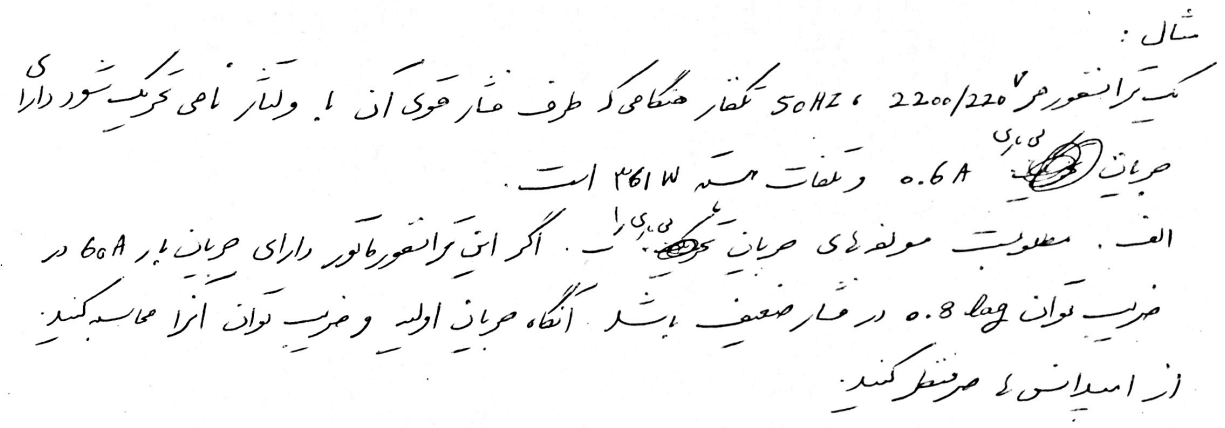 مثال :
یک ترانسفورمر 2200/220V ، 50HZ تکفاز هنگامی که طرف فشار قوی آن با ولتاژ نامی تحریک شود دارای
جریان بی باری 0.6A و تلفات هسته ۳۶۱W است.
الف . مطلوبست مولفه های جریان بی باری ب . اگر این ترانسفورماتور دارای جریان بار 60A در
ضریب توان 0.8 lag در فشار ضعیف باشد . آنگاه جریان اولیه و ضریب توان آنرا محاسبه کنید.
از امپدانس ها صرفنظر کنید.